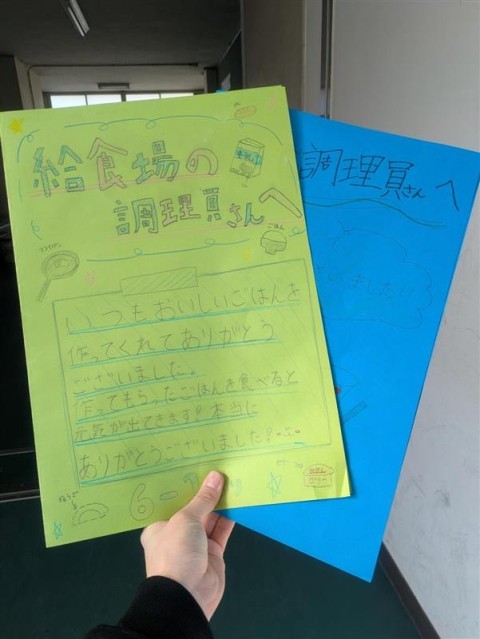 給食場の
調理員さんへ
ごはん
フライパン
いつもおいしいごはんを
作ってくれてありがとう
ございました。
作ってもらったごはんを食べると
元気が出てきます！本当に
ありがとうございました！
6-
調理員さんへ
ました